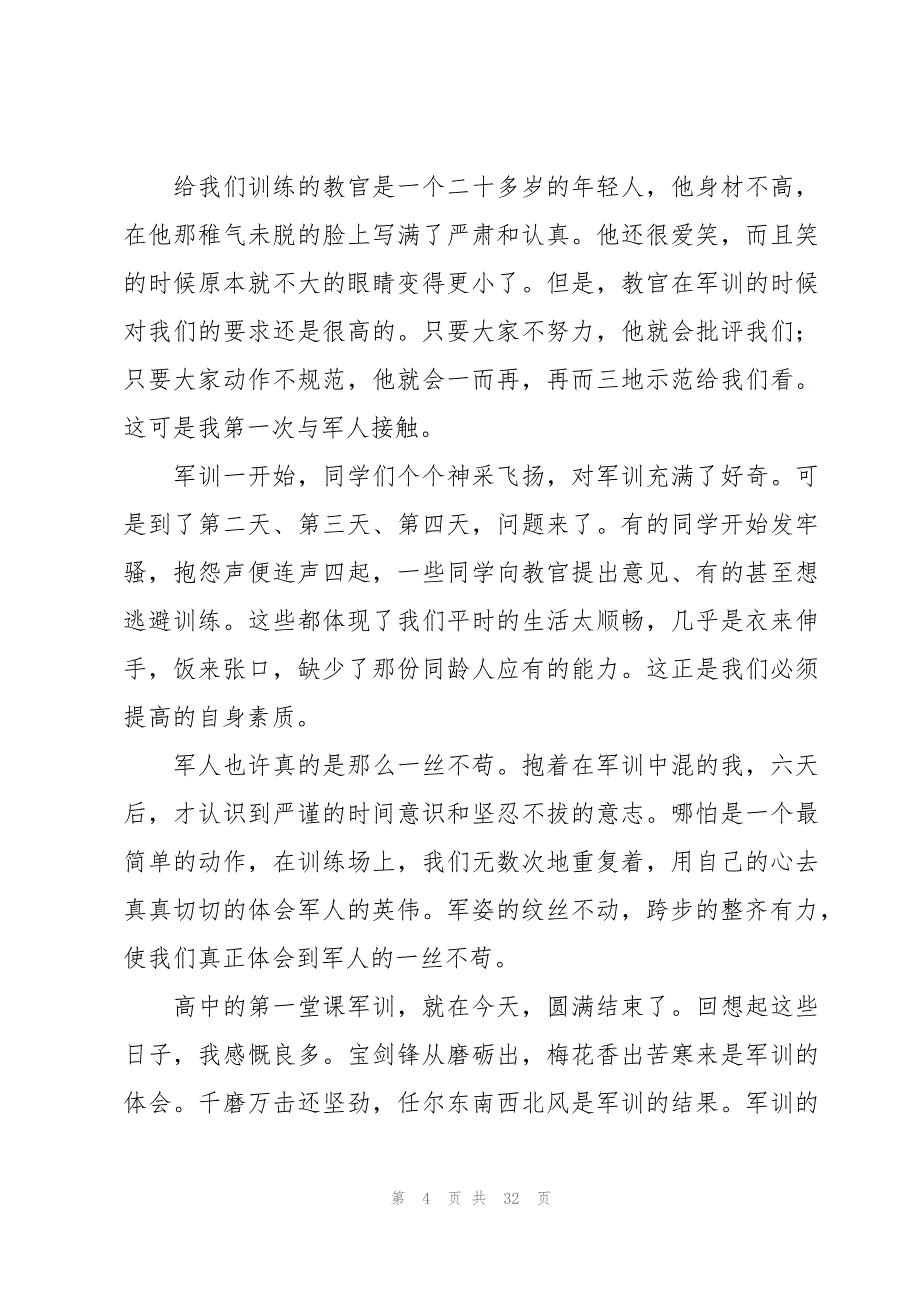 给我们训练的教官是一个二十多岁的年轻人，他身材不高，
在他那稚气未脱的脸上写满了严肃和认真。他还很爱笑，而且笑
的时候原本就不大的眼睛变得更小了。但是，教官在军训的时候
对我们的要求还是很高的。只要大家不努力，他就会批评我们；
只要大家动作不规范，他就会一而再，再而三地示范给我们看。
这可是我第一次与军人接触。
军训一开始，同学们个个神采飞扬，对军训充满了好奇。可
是到了第二天、第三天、第四天，问题来了。有的同学开始发牢
骚，抱怨声便连声四起，一些同学向教官提出意见、有的甚至想
逃避训练。这些都体现了我们平时的生活太顺畅，几乎是衣来伸
手，饭来张口，缺少了那份同龄人应有的能力。这正是我们必须
提高的自身素质。
军人也许真的是那么一丝不苟。抱着在军训中混的我，六天
后，才认识到严谨的时间意识和坚忍不拔的意志。哪怕是一个最
简单的动作，在训练场上，我们无数次地重复着，用自己的心去
真真切切的体会军人的英伟。军姿的纹丝不动，跨步的整齐有力，
使我们真正体会到军人的一丝不苟。
高中的第一堂课军训，就在今天，圆满结束了。回想起这些
日子，我感慨良多。宝剑锋从磨砺出，梅花香出苦寒来是军训的
体会。千磨万击还坚劲，任尔东南西北风是军训的结果。军训的
第 4 页 共 32 页